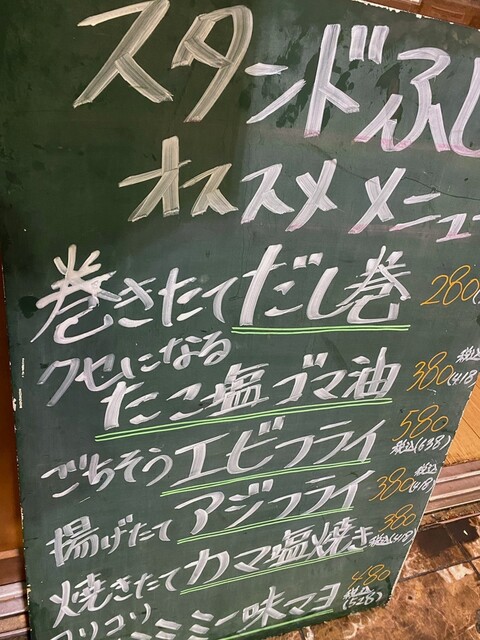 スタンドふじ
オススメメニュー
巻きたてだし巻 280
クセになる
たこ塩ゴマ油 380 税込(418
ごちそうエビフライ 580 税込(638)
揚げたてアジフライ 380 税込(418
焼きたてカマ塩焼き 380 税込(418)
コリコリミミー味マヨ 480 税込(528)